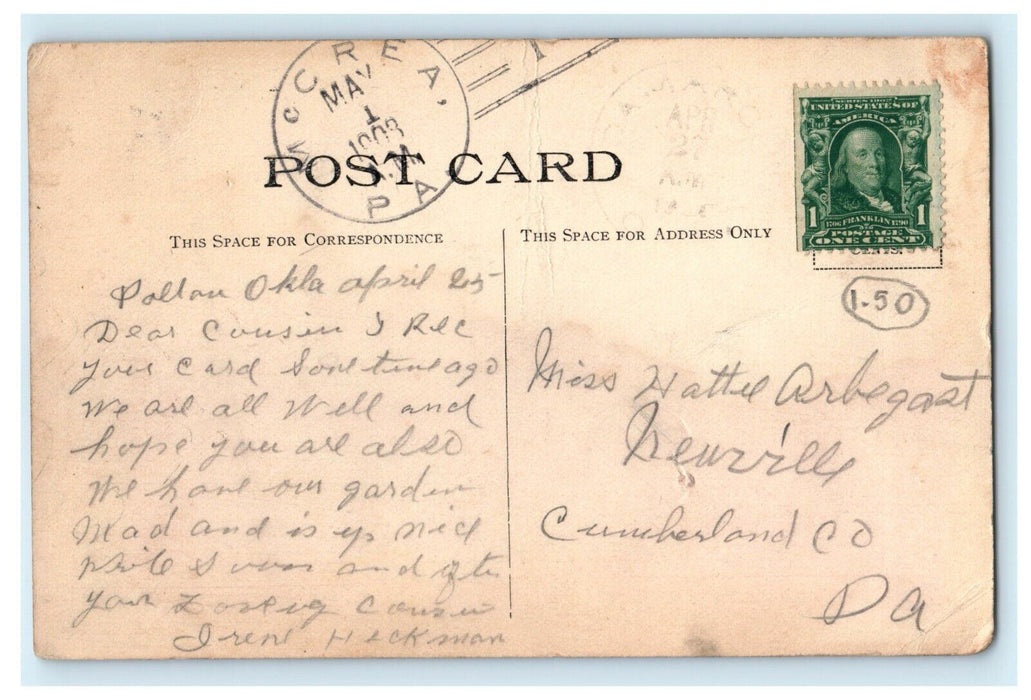 MCCREA,
MAY
1
1908
A.M.
PA.
POST CARD
SERIES 1902
UNITED STATES OF
AMERICA
1706 FRANKLIN 1790
1 1
POSTAGE
ONE CENT
CENTS.
1-50
THIS SPACE FOR CORRESPONDENCE
Okla april 25
Dear Cousin I Rec
your Card Sometime ago
We are all Well and
hope you are also
We have our garden
Mad and is up nice
write Soon and ofte
your Loveing Cousin
Irene Heckman
THIS SPACE FOR ADDRESS ONLY
Miss Hattie Arbegast
Newville
Cumberland CO
Pa